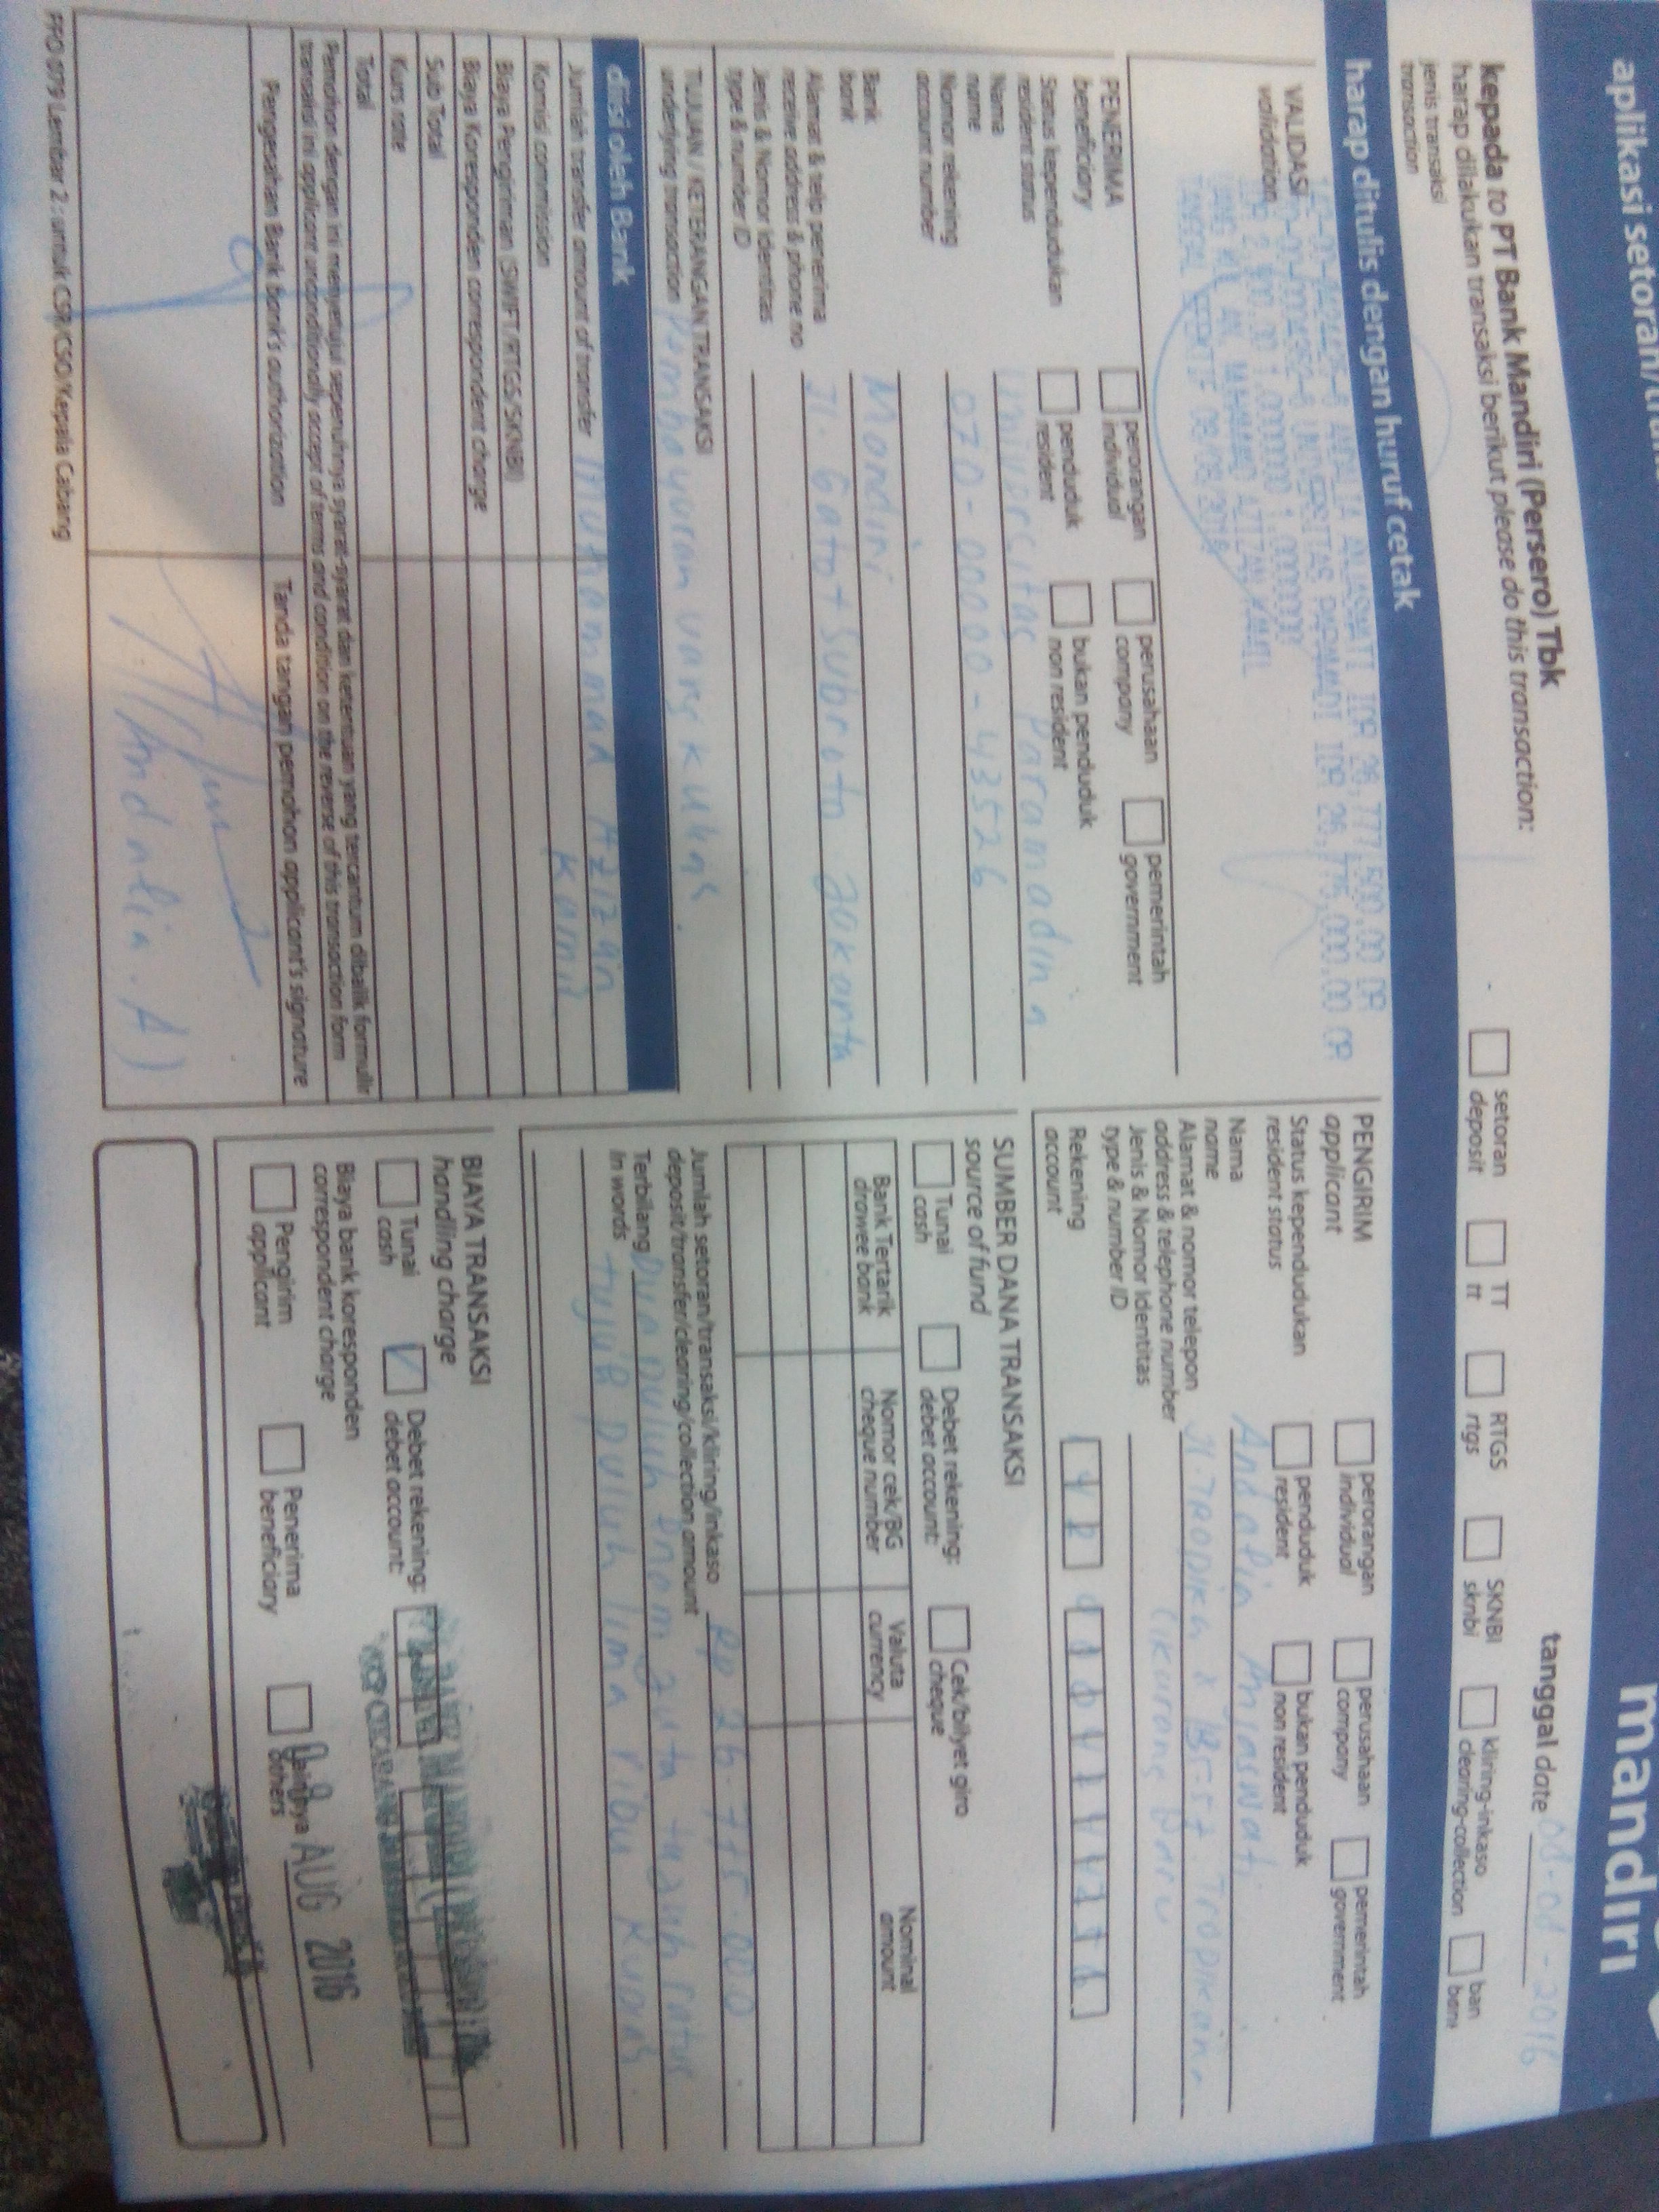 aplikasi setoran/
mandiri
kepada to PT Bank Mandiri (Persero) Tbk
harap dilakukan transaksi berikut please do this transaction:
tanggal date 08-08-2016
jenis transaksi
transaction
setoran
deposit
TT
tt
RTGS
rtgs
SKNBI
sknbi
kliring-inkaso
clearing-collection
harap ditulis dengan huruf cetak
VALIDASI
validation
IDR 26,777,500.00 DR
UNIVERSITAS PARAMADI IDR 26,775,000.00 CR
PENERIMA
beneficiary
perorangan
individual
perusahaan
company
pemerintah
government
Status kependudukan
resident status
penduduk
resident
bukan penduduk
non resident
Nama
name
Universitas Paramadina
Nomor rekening
account number
070-00000-43526
Bank
bank
Mandiri
Alamat & telp penerima
receive address & phone no
Jl. Gatot Subroto Jakarta
Jenis & Nomor Identitas
type & number ID
TUJUAN / KETERANGAN TRANSAKSI
underlying transaction
Pembayaran uang kuliah.
diisi oleh Bank
Jumlah transfer amount of transfer
Muhammad Azizan
Kamil
Komisi commission
Biaya Pengiriman (SWIFT/RTGS/SKNBI)
Biaya Koresponden correspondent charge
Sub Total
Kurs rate
Total
Pemohon dengan ini menyetujui sepenuhnya syarat-syarat dan ketentuan yang tercantum dibalik formulir
transaksi ini applicant unconditionally accept of terms and condition on the reverse of this transaction form
Pengesahan Bank bank's authorization
Tanda tangan pemohon applicant's signature
(Andalia. A)
FFO 079 Lembar 2 : untuk CSR/CSO/Kepala Cabang
PENGIRIM
applicant
perorangan
individual
perusahaan
company
pemerintah
government
Status kependudukan
resident status
penduduk
resident
bukan penduduk
non resident
Nama
name
Andalia Anjaswati
Alamat & nomor telepon
address & telephone number
Cikarang Baru
Jenis & Nomor Identitas
type & number ID
Rekening
account
SUMBER DANA TRANSAKSI
source of fund
Tunai
cash
Debet rekening:
debet account:
Cek/bilyet giro
cheque
Bank Tertarik
drawee bank
Nomor cek/BG
cheque number
Valuta
currency
Nominal
amount
Jumlah setoran/transaksi/kliring/inkaso
deposit/transfer/clearing/collection amount
Rp 26.775.000
Terbilang
in words
Dua puluh enam juta tujuh ratus
tujuh puluh lima ribu rupiah
BIAYA TRANSAKSI
handling charge
Tunai
cash
Debet rekening:
debet account:
Biaya bank koresponden
correspondent charge
Pengirim
applicant
Penerima
beneficiary
Lainnya
others
08 AUG 2016